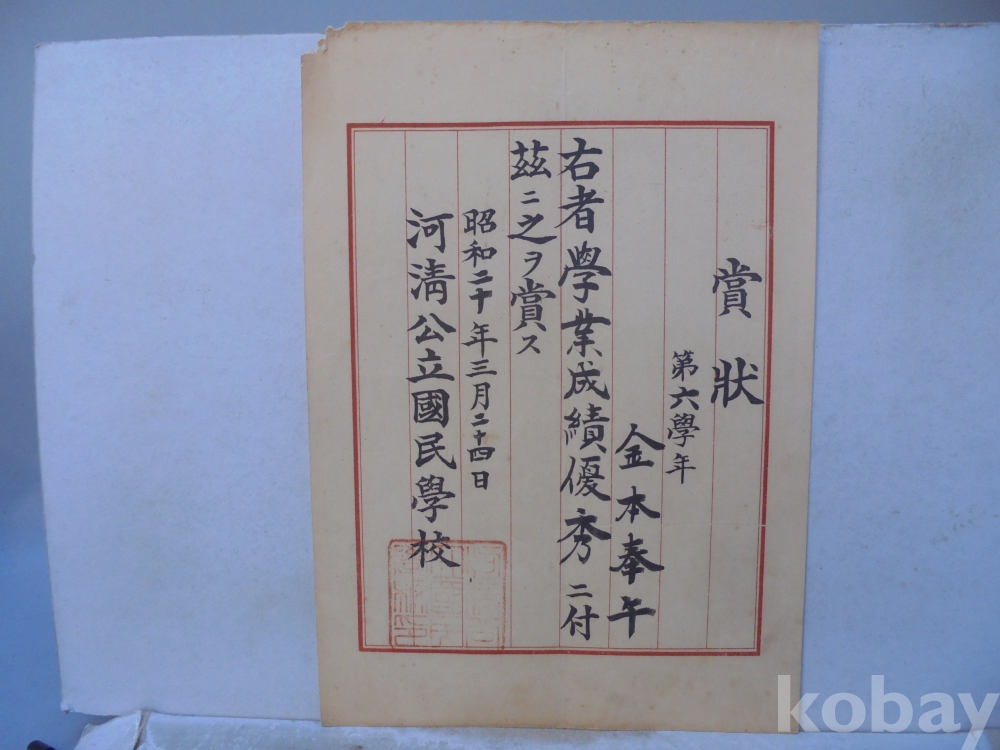 賞狀
第六學年
金本奉午
右者學業成績優秀ニ付
玆ニ之ヲ賞ス
昭和二十年三月二十四日
河淸公立國民學校
kobay